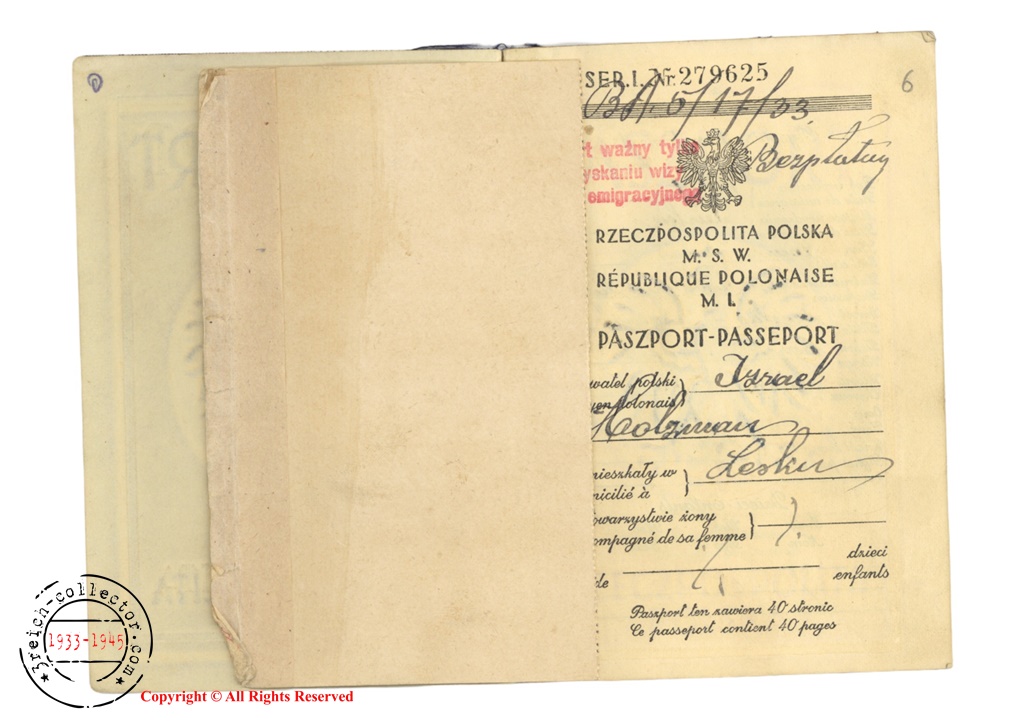 SER. I. Nr. 279625
6
BA. 5/17/33
Bezpłatny
t ważny tylko
yskaniu wizy
emigracyjnej
RZECZPOSPOLITA POLSKA
M. S. W.
RÉPUBLIQUE POLONAISE
M. I.
PASZPORT-PASSEPORT
watel polski } Izrael
yen polonais
Holzman
mieszkały w } Lesku
nicilié à
owarzystwie żony }
ompagné de sa femme
dzieci
de enfants
Paszport ten zawiera 40 stronic
Ce passeport contient 40 pages
3reich-collector.com
1933-1945
Copyright © All Rights Reserved